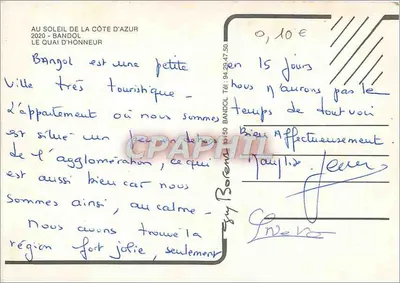 AU SOLEIL DE LA CÔTE D'AZUR
2020 - BANDOL
LE QUAI D'HONNEUR
BANDOL est une petite
ville très touristique.
L'appartement où nous sommes
est situé un peu
de l'agglomération, ce qui
est aussi bien car nous
sommes ainsi, au calme.
Nous avons trouvé la
région fort jolie, seulement
0,10€
en 15 jours
nous n'aurons pas le
temps de tout voir
Bien Affectueusement.
BANDOL Tél. : 94.29.47.50.
CPAPHIL